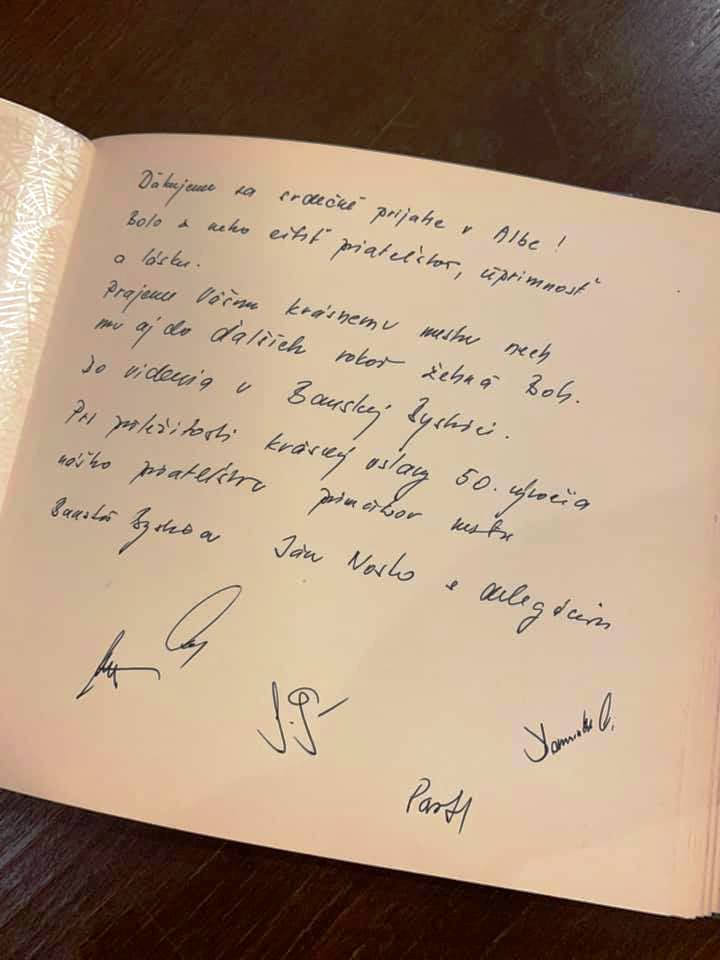 Ďakujeme za srdečné prijatie v Albe!
Bolo z neho cítiť priateľstvo, úprimnosť
a lásku.
Prajeme Vášmu krásnemu mestu nech
mu aj do ďalších rokov žehná Boh.
Do videnia v Banskej Bystrici.
Pri príležitosti krásnej oslavy 50. výročia
nášho priateľstva primátor mesta
Banská Bystrica Ján Nosko s delegáciou